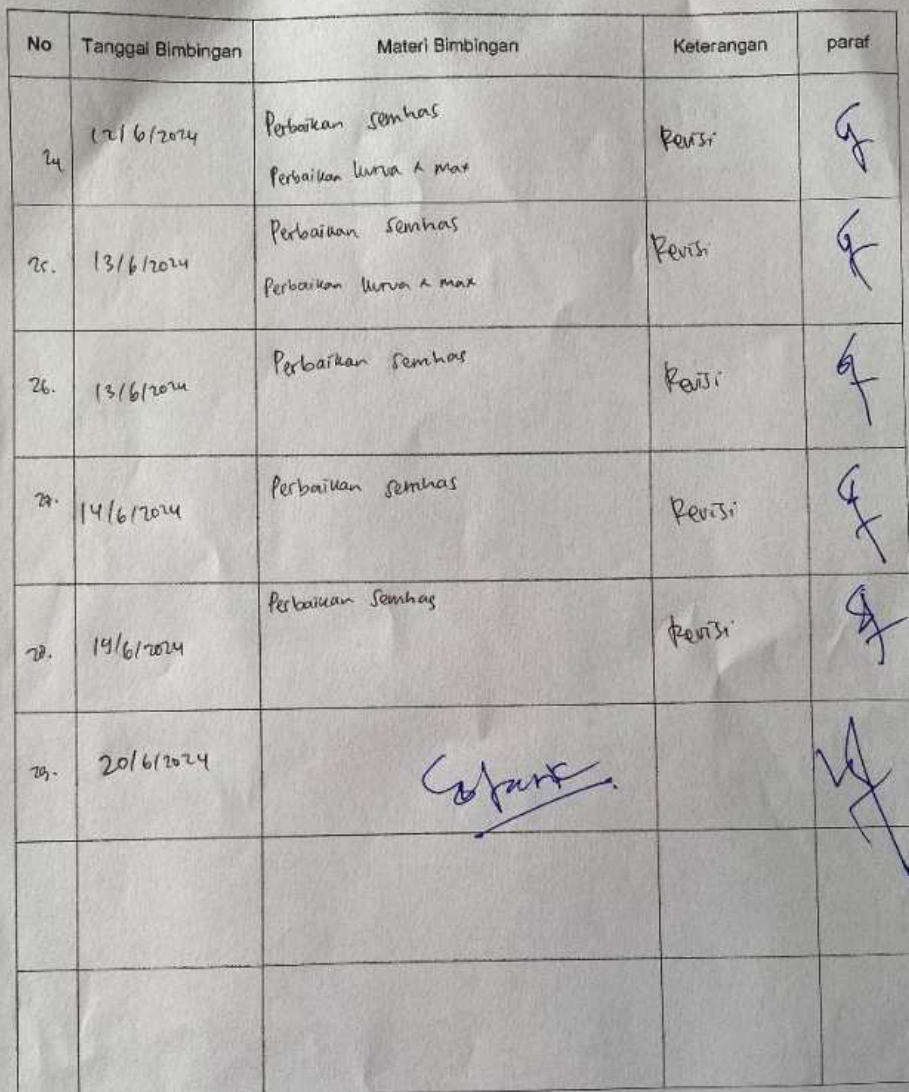 No Tanggal Bimbingan Materi Bimbingan Keterangan paraf
24 12/6/2024 Perbaikan semhas Revisi
Perbaikan kurva λ max
25. 13/6/2024 Perbaikan semhas Revisi
Perbaikan kurva λ max
26. 13/6/2024 Perbaikan semhas Revisi
27. 14/6/2024 Perbaikan semhas Revisi
28. 19/6/2024 Perbaikan semhas Revisi
29. 20/6/2024